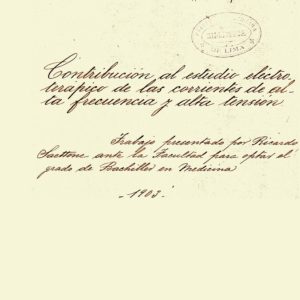 BIBLIOTECA
DE LIMA
Contribución al estudio electro-
terápico de las corrientes de al-
ta frecuencia y alta tensión
Trabajo presentado por Ricardo
ante la Facultad para optar el
grado de Bachiller en Medicina
1903.